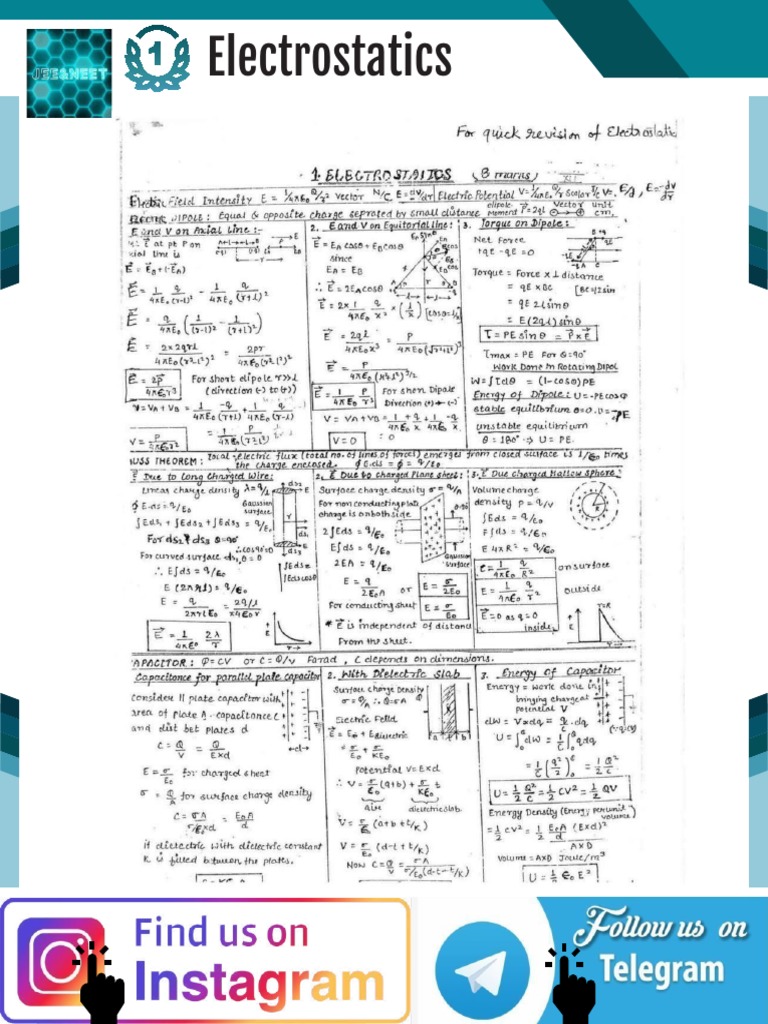 JEE&NEET
1
Electrostatics
For quick revision of Electrostatic
1. ELECTROSTATICS (8 marks)
Field Intensity E = 1/4πE₀ Q/r² Vector N/C, E = dv/dr | Electric Potential V = 1/4πE₀ Q/r Scalar
ELECTRIC DIPOLE: Equal & opposite charge seprated by small distance dipole moment P = 2ql Vector unit cm,
E and V on Axial Line :-
E at pt P on
axial line is
E⃗ = E_B + (-E_A)
E⃗ = 1/4πE₀ q/(r-l)² - 1/4πE₀ q/(r+l)²
E⃗ = q/4πE₀ (1/(r-l)² - 1/(r+l)²)
E⃗ = 2×2qrl/4πE₀(r²-l²)² = 2pr/4πE₀(r²-l²)²
E⃗ = 2p⃗/4πE₀r³ For short dipole r>>l
(direction (-) to (+))
V = V_A + V_B = 1/4πE₀ -q/(r+l) + 1/4πE₀ q/(r-l)
V = P/4πE₀r² = 1/4πE₀ P/(r²-l²)
2. E and V on Equitorial line:
E⃗ = E_A cosθ + E_B cosθ
since
E_A = E_B
∴ E⃗ = 2E_A cosθ
E⃗ = 2×1/4πE₀ q/x² × (l/x) [cosθ = l/x]
E⃗ = 2ql/4πE₀x³ = P/4πE₀(√r²+l²)³
E⃗ = P/4πE₀(r²+l²)^3/2
E⃗ = 1/4πE₀ P/r³ For short Dipole
Direction (+) → (-)
V = V_A + V_B = 1/4πE₀ +q/x + 1/4πE₀ -q/x
V = 0 = 0
3. Torque on Dipole:
Net Force
+qE - qE = 0
Torque = Force × ⊥ distance
= qE × BC [BC = 2l sin
= qE 2l sinθ
= E(2ql) sinθ
τ = PE sinθ = P⃗ × E⃗
τmax = PE For θ = 90°
Work Done in Rotating Dipol
W = ∫τdθ = (1-cosθ) PE
Energy of Dipole: U = -PE cosθ
stable equilibrium θ = 0. U = -PE
unstable equilibrium
θ = 180° → U = PE
USS THEOREM: Total electric flux (total no. of lines of force) emerges from closed surface is 1/E₀ times
the charge enclosed. ∮E.ds = φ = q/E₀
E Due to Long Charged Wire:
Linear charge density λ = q/l
∮E.ds = q/E₀
Gaussian surface
∫Eds₁ + ∫Eds₂ + ∫Eds₃ = q/E₀
For ds₂ & ds₃ θ = 90°
∴ cos90 = 0
For curved surface ds₁ θ = 0
∫Eds = ∫Eds cos0
∴ E∫ds = q/E₀
E(2πrl) = q/E₀
E = q/2πrlE₀ = 2q/l/×4πrE₀
E⃗ = 1/4πE₀ 2λ/r
2. E Due to Charged Plane Sheet:
Surface charge density σ = q/A
For non conducting plate
charge is on both side
2∫Eds = q/E₀
E∫ds = q/E₀
Gaussian Surface
2EA = q/E₀
E = q/2E₀A or E = σ/2E₀
For conducting sheet E = σ/E₀
* E⃗ is independent of distance
From the sheet.
3. E Due charged Hallow Sphere:
Volume charge
density ρ = q/V
∫Eds = q/E₀
E∫ds = q/E₀
E 4πR² = q/E₀
E = 1/4πE₀ q/R² on surface
E = 1/4πE₀ q/r² outside
E⃗ = 0 as q = 0 inside
r=R
APACITOR: Q = CV or C = Q/V Farad, C depends on dimensions.
Capacitance for parallel plate capacitor
Consider || plate capacitor with
area of plate A. capacitance C
and dist bet plates d
C = Q/V = Q/E×d
E = σ/E₀ for charged sheet
σ = Q/A for surface charge density
C = σA/σ/E₀×d = E₀A/d
If dielectric with dielectric constant
K is filled between the plates.
2. With Dielectric Slab
Surface charge Density
σ = Q/A ∴ Q = σA
Electric Feild
E⃗ = E₀ + E dielectric
= σ/E₀ + σ/KE₀
potential V = E×d
∴ V = σ/E₀ (a+b) + σ/KE₀ t
air dielectric slab
V = σ/E₀ (a+b+t/K)
V = σ/E₀ (d-t-t/K)
Now C = Q/V = σA/σ/E₀(d-t-t/K)
3. Energy of Capacitor
Energy = work done in
bringing charge at
potential V
dW = V×dq = q/C.dq
U = ∫₀^Q dW = 1/C ∫₀^Q qdq
= 1/C (q²/2)₀^Q = 1/2 Q²/C
U = 1/2 Q²/C = 1/2 CV² = 1/2 QV
Energy Density (Energy per unit volume)
= 1/2 CV² = 1/2 E₀A/d (E×d)²/A×D
Volume = A×D Joule/m³
U = 1/2 E₀E²
Find us on
Instagram
Follow us on
Telegram